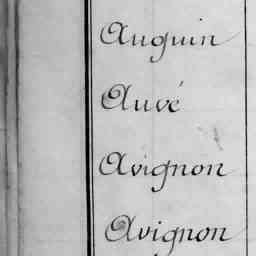 Auguin
Auvé
Avignon
Avignon